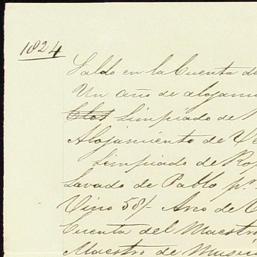 1824
Saldo en la Cuenta de
Un año de alojami
Limpiado de
Alojamiento de
Limpiado de Ro
Lavado de Pablo pr
Vino 58/ Ano de
Cuenta del Maestr
Maestro de Musi